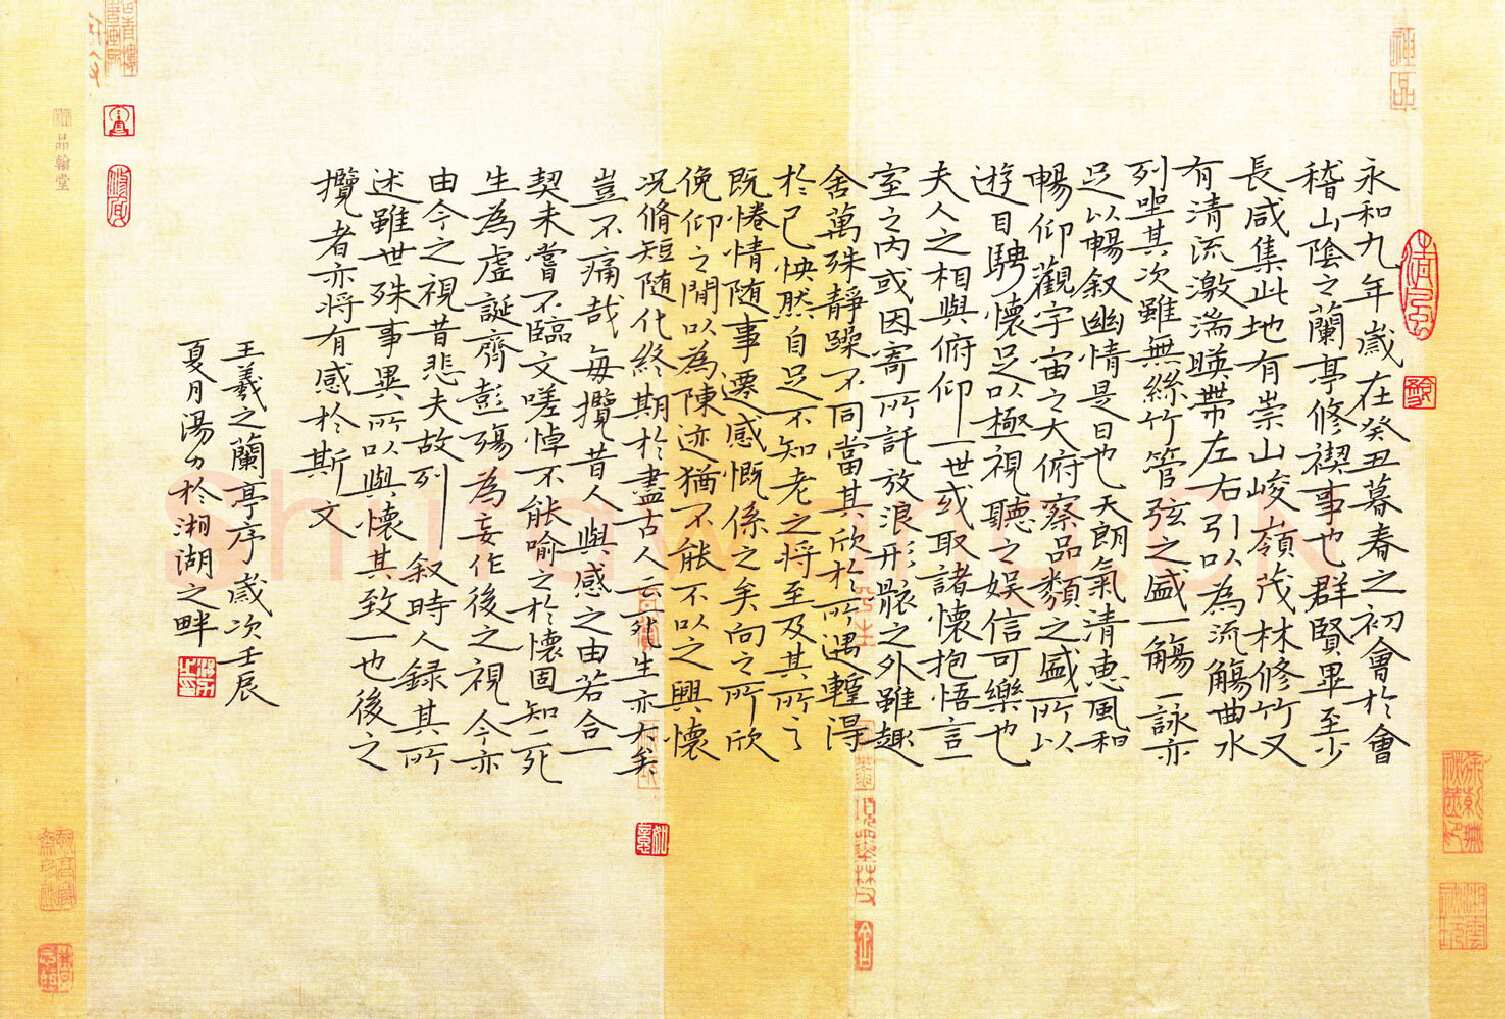 永和九年歲在癸丑暮春之初會於會
稽山陰之蘭亭修禊事也群賢畢至少
長咸集此地有崇山峻嶺茂林修竹又
有清流激湍暎帶左右引以為流觴曲水
列坐其次雖無絲竹管弦之盛一觴一詠亦
足以暢叙幽情是日也天朗氣清惠風和
暢仰觀宇宙之大俯察品類之盛所以
遊目騁懷足以極視聽之娛信可樂也
夫人之相與俯仰一世或取諸懷抱悟言一
室之內或因寄所託放浪形骸之外雖趣
舍萬殊靜躁不同當其欣於所遇蹔得
於己怏然自足不知老之将至及其所之
既惓情随事遷感慨係之矣向之所欣
俛仰之間以為陳迹猶不能不以之興懷
况脩短隨化終期於盡古人云死生亦大矣
豈不痛哉每攬昔人興感之由若合一
契未嘗不臨文嗟悼不能喻之於懷固知一死
生為虛誕齊彭殤為妄作後之視今亦
由今之視昔悲夫故列叙時人録其所
述雖世殊事異所以興懷其致一也後之
攬者亦将有感於斯文
王羲之蘭亭序歲次壬辰
夏月湯力於湘湖之畔
品翰堂